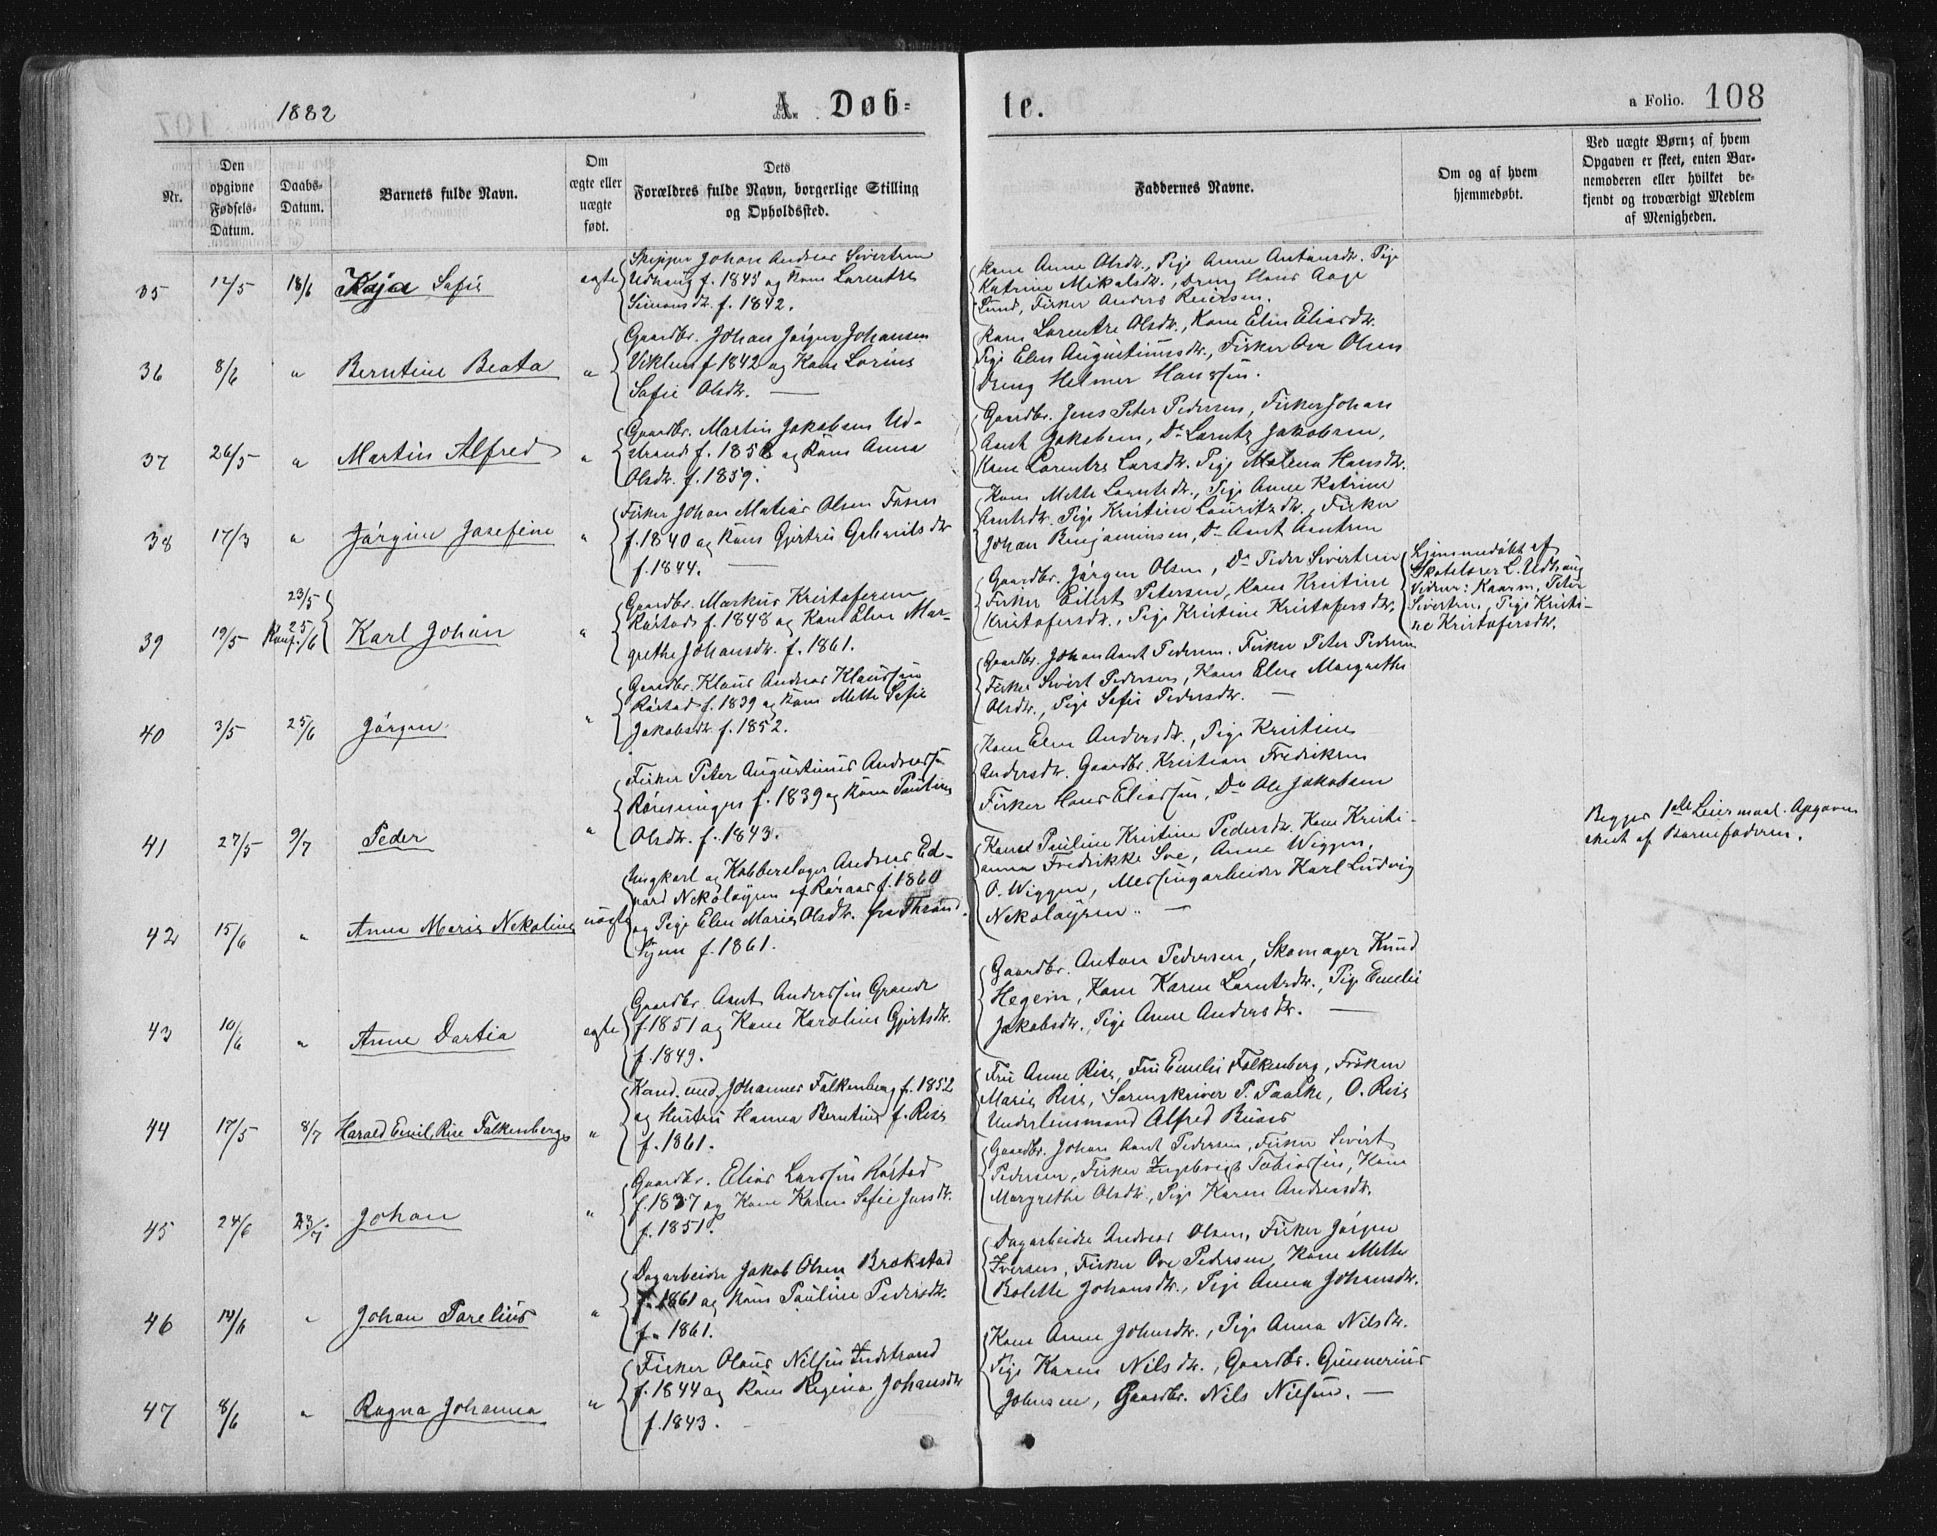 1882
A. Døb-
te.
a Folio. 108
Nr.
Den opgivne Fødsels-Datum.
Daabs-Datum.
Barnets fulde Navn.
Om ægte eller uægte født.
Dets Forældres fulde Navn, borgerlige Stilling og Opholdssted.
Faddernes Navne.
Om og af hvem hjemmedøbt.
Ved uægte Børn; af hvem Opgaven er skeet, enten Barnemoderen eller hvilket bekjendt og troværdigt Medlem af Menigheden.
35 12/5 18/6 Kaja Sofie ægte
Skipper Johan Andreas Sivertsen
Udhaug f. 1845 og Kone Larentse
Simonsdtr. f. 1842.
Kone Anne Olsdtr., Pige Anne Antonsdtr. Pige
Katrine Mikalsdtr., Dreng Hans Aage
Lund, Fisker Anders Reiersen.
36 8/6 " Berntine Beata "
Gaardbr. Johan Jørgen Johansen
Viklem f 1842 og Kone Lorine
Sofie Olsdtr. —
Kone Larentse Olsdtr., Kone Elen Eliasdtr.
Pige Elen Augustinusdtr., Fisker Ove Olsen
Dreng Helmer Hanssen.
37 26/5 " Martin Alfred "
Gaardbr. Martin Jakobsen Ud-
strand f. 1856 og Kone Anna
Olsdtr. f. 1859.
Gaardbr. Jens Peter Pedersen, Fisker Johan
Arnt Jakobsen, Do Larntz Jakobsen,
Kone Larentse Larsdtr. Pige Malena Hansdtr.
38 17/3 " Jørgine Josefine "
Fisker Johan Matias Olsen
f. 1840 og Kone Gjertru Gabrielsdtr.
f. 1844. —
Kone Mette Larntsdtr., Pige Anne Katrine
Arntsdtr. Pige Kristine Lauritzdtr., Fisker
Johan Benjaminsen, Do Arnt Arntsen
39 19/5 23/5 Konf. 25/6 Karl Johan "
Gaardbr. Markus Kristofersen
Rørstad f. 1848 og Kone Elen Mar-
grethe Johansdtr. f. 1861.
Gaardbr. Jørgen Olsen, Do Peder Sivertsen
Fisker Eilert Petersen, Kone Kristine
Kristofersdtr., Pige Kristine Kristofersdtr.
Hjemmedøbt af
Skolelærer L. Udhaug
Vidner: Peter
Sivertsen, Pige Kristi-
ne Kristofersdtr.
40 3/5 25/6 Jørgen "
Gaardbr. Klaus Andreas Klaussen
Rørstad f. 1839 og Kone Mette Sofie
Jakobsdtr. f. 1852.
Gaardbr. Johan Arnt Pedersen. Fisker Peter Pedersen
Fisker Sivert Pedersen, Kone Elen Margrethe
Olsdtr., Pige Sofie Pedersdtr. —
41 27/5 9/7 Peder "
Fisker Peter Augustinus Andreass
f. 1839 og Kone Pauline
Olsdtr. f. 1843.
Kone Elen Andersdtr., Pige Kristine
Andersdtr. Gaardbr. Kristian Fredriksen
Fisker Hans Eliassen, Do Ole Jakobsen
42 15/6 " Anna Marie Nekoline uægte
Ungkarl og Kobberslager Andreas Ed-
vard Nekolaysen af Røraas f. 1860
og Pige Elen Marie Olsdtr. fra Thrond-
hjem f. 1861.
Kone Pauline Kristine Pedersdtr. Kone Kristi-
anna Fredrikke Soe, Anne Wiggen,
O. Wiggen, Messingarbeider Karl Ludvig
Nekolaysen. —
Begges 1ste Leiermaal. Opgaven
skeet af Barnefaderen.
43 10/6 " Anne Dortia ægte
Gaardbr. Arnt Anderssen Grande
f. 1851 og Kone Karoline Gjertsdtr.
f. 1849.
Gaardbr. Anton Pedersen, Skomager Knud
Hegem, Kone Karen Larntsdtr., Pige Emelie
Jakobsdtr., Pige Anne Andersdtr. —
44 17/5 8/7 Harald Emil Rise Falkenberg "
Kand. med. Johannes Falkenberg f. 1852
og Hustru Hanna Berntine f. Rise
f. 1861.
Fru Anne Rise, Fru Emelie Falkenberg, Frøken
Marie Rise, Sorenskriver P. Paalke, O. Rise
Underlensmand Alfred
45 24/6 23/7 Johan "
Gaardbr. Elias Larssen Rørstad
f. 1837 og Kone Karen Sofie Jensdtr.
f. 1851.
Gaardbr. Johan Arnt Pedersen, Fisker Sivert
Pedersen, Fisker Ingebrigt Tobiassen, Kone
Margrethe Olsdtr., Pige Karen Andreasdtr.
46 14/6 " Johan Parelius "
Dagarbeider Jakob Olsen Brækstad
f. 1861 og Kone Pauline Pedersdtr.
f. 1861.
Dagarbeider Andreas Olsen, Fisker Jørgen
Iversen, Fisker Ove Pedersen, Kone Mette
Bolette Johansdtr., Pige Anna Johansdtr.
47 8/6 " Ragna Johanna "
Fisker Olaus Nilssen Indstrand
f. 1844 og Kone Regina Johansdtr.
f. 1843.
Kone Anne Johnsdtr., Pige Anna Nilsdtr.
Pige Karen Nilsdtr., Gaardbr. Gunnerius
Johnsen, Gaardbr. Nils Nilsen. —